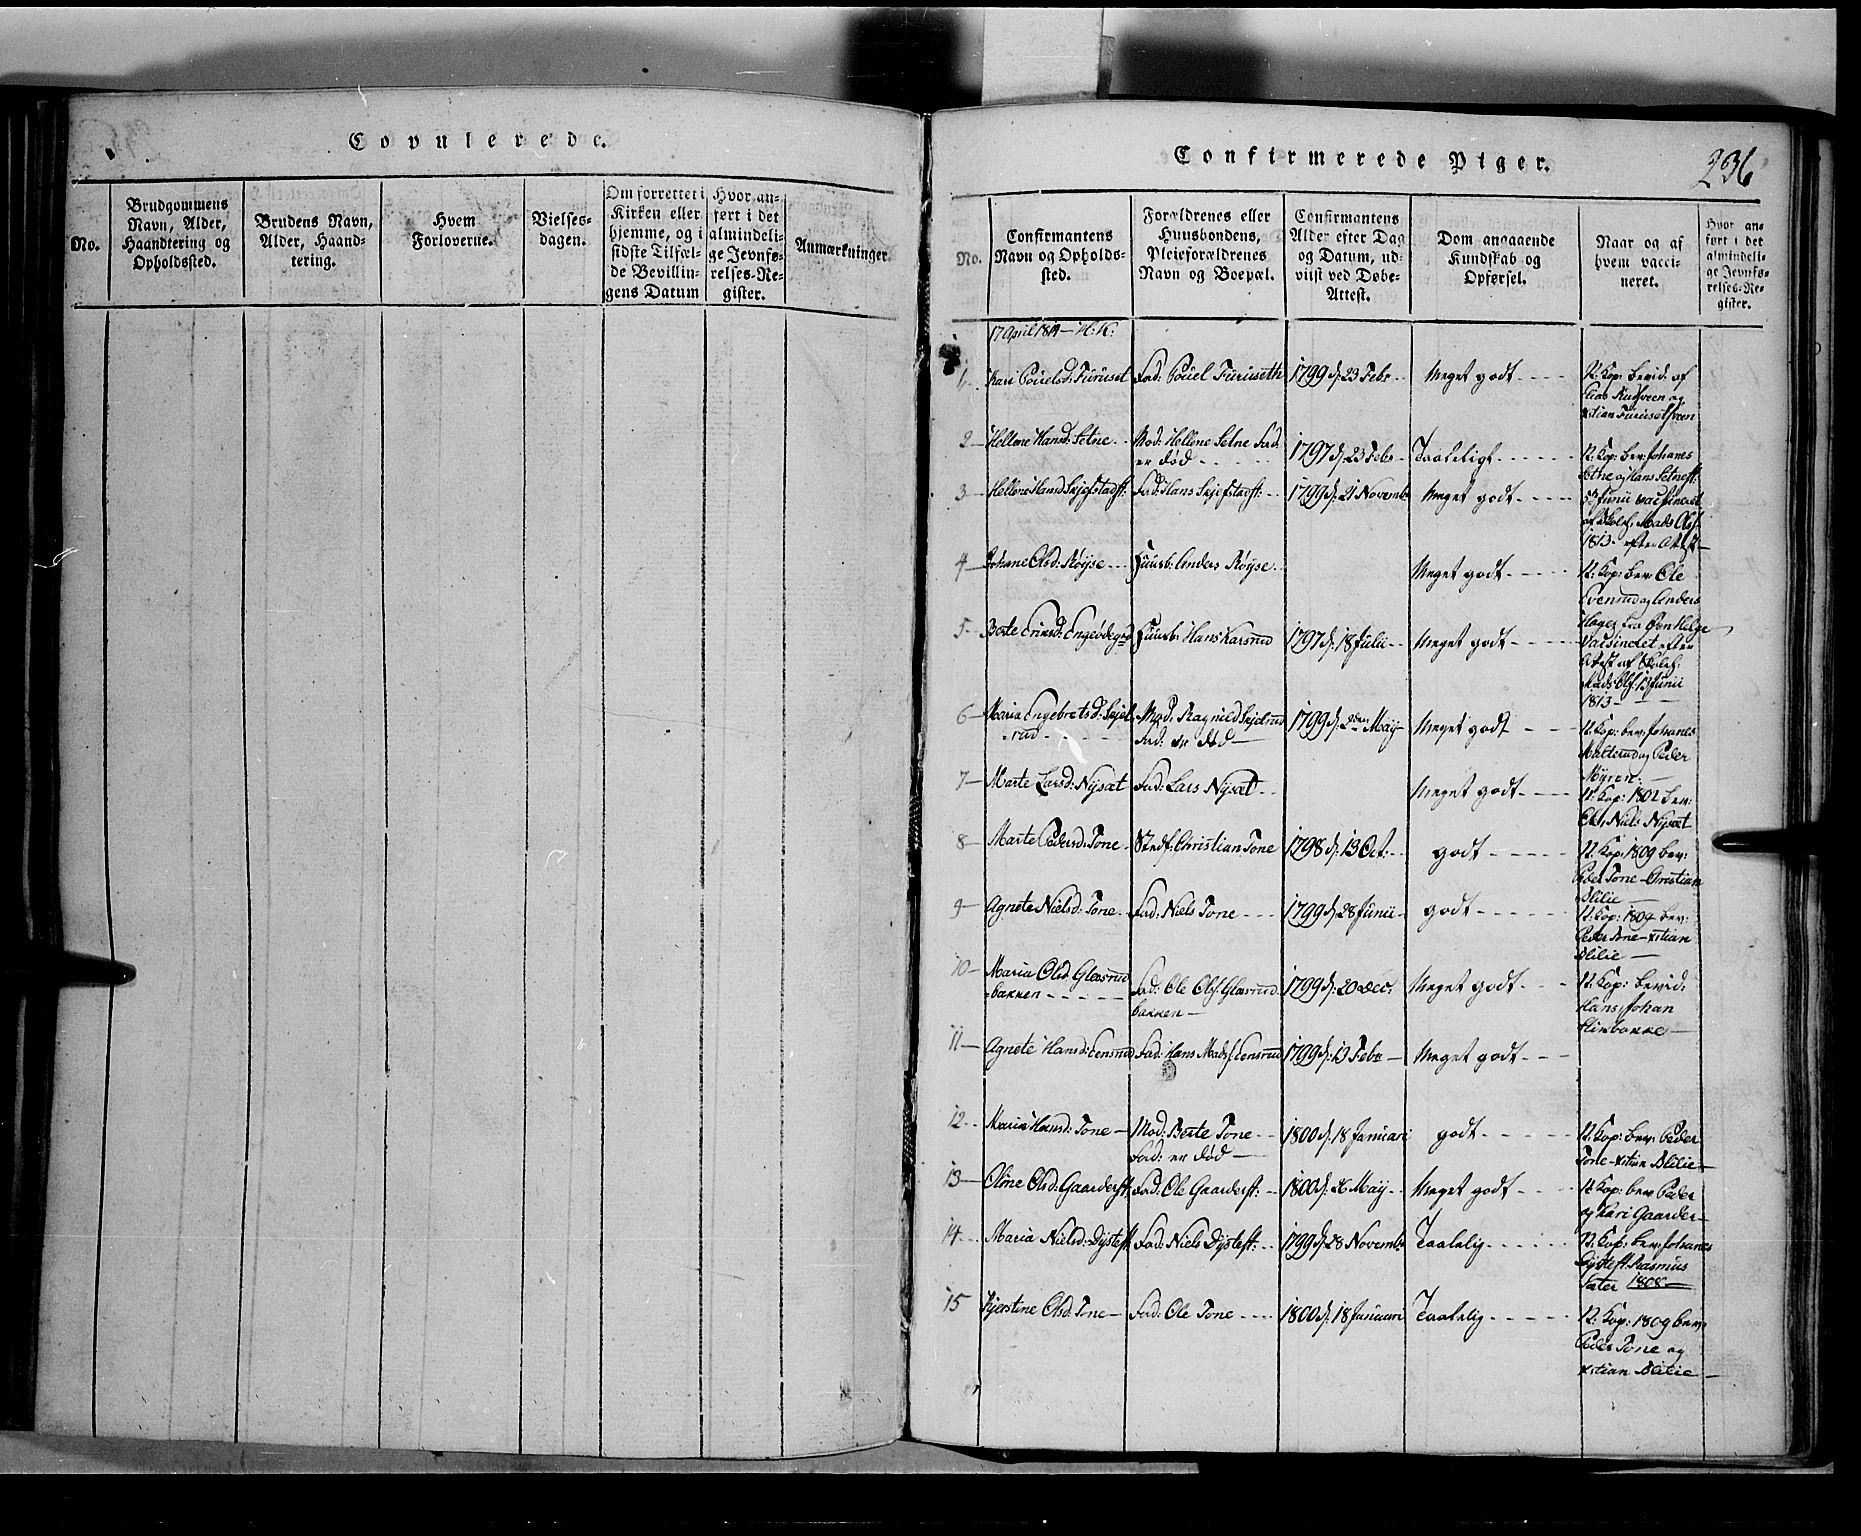 Copulerede.
No.
Brudgommens
Navn, Alder,
Haandtering og
Opholdssted.
Brudens Navn,
Alder, Haand-
tering.
Hvem
Forloverne.
Vielses-
dagen.
Om forrettet i
Kirken eller
hjemme, og i
sidste Tilfæl-
de Bevillin-
gens Datum
Hvor an-
ført i det
almindeli-
ge Jevnfø-
relses-Re-
gister.
Anmærkninger
Confirmerede Piger.
236
No.
Confirmantens
Navn og Opholds-
sted.
Forældrenes eller
Huusbondens,
Pleieforældrenes
Navn og Boepæl.
Confirmantens
Alder efter Dag
og Datum, ud-
viist ved Døbe-
Attest.
Dom angaaende
Kundskab og
Opførsel.
Naar og af
hvem vacci-
neret.
Hvor an-
ført i det
almindeli-
ge Jevnfø-
relses-Re-
gister.
17 April 1814 — H: K:
1
Kari Pouelsd: Furuset
Fad: Pouel Furuseth
1799 d: 23 Febr
Meget godt
N: Kop: bevid: af
og
xstian Furusethveen
2
Hellene Hansd: Setne
Mod: Hellene Setne Fad:
er død
1797 d: 23 Febr
Taaleligt
N: Kop: bev: Johanes
Setne og Hans Setneft:
3
Hellene Hansd Skjefstadft:
Fad: Hans Skjefstadft:
1799 d: 21 Novembr
Meget godt
Junii vaccineret
af Mads Ols:
1813 efter Attest
4
Johane Olsd: Røyse
Huusb: Anders Røyse
Meget godt
N: Kop: bev: Ole
Evensrud og Anders
5
Berte Eriksd: Engeødegrd
Huusb: Hans Karsrud
1797 d: 18 Julii
Meget godt
Helge
Vaccineret efter
Attest af
Mads Ols: 13 Junii
1813
6
Maria Engebretsd: Skjel
rud
Mod: Ragnild Skjelrud
Fad: er død
1799 d: 2den May
Meget godt
N: Kop: bev: Johanes
og Peder
Myren
7
Marte Larsd: Nysæt
Fad: Lars Nysæt
Meget godt
N: Kop: 1802 bev:
Niels Nysæt
8
Marte Pedersd: Tone
Stedf: Christian Tone
1798 d: 13 Oct:
godt
N: Kop: 1809 bev:
Peder Tone Christian
Blilie
9
Agnete Nielsd: Tone
Fad: Niels Tone
1799 d: 28 Junii
godt
N: Kop: 1809 bev:
Peder Tone xstian
Blilie
10
Maria Olsd Glæsrud
bakken
Fad: Ole Ols: Glæsrud
bakken
1799 d: 20 Dec:
Meget godt
N: Kop: bevid:
Hans, Johan
11
Agnete Hansd: Lensrud
Fad: Hans Mads: Lensrud
1799 d: 13 Febr
Meget godt
12
Maria Hansd: Tone
Mod: Berte Tone
Fad: er død
1800 d: 18 Januari
godt
N: Kop: bev: Peder
Tone xstian Blilie
13
Oline Olsd: Gaarderft:
Fad: Ole Gaarderft:
1800 d: 26 May
Meget godt
N: Kop: bev: Peder
og Kari Gaarder
14
Maria Nielsd: Dysteft:
Fad: Niels Dysteft:
1799 d: 28 Novembr
Taalelig
N: Kop: bev: Johanes
Dysteft: Rasmus
Sæter 1808
15
Kjerstine Olsd: Tone
Fad: Ole Tone
1800 d: 18 Januari
Taalelig
N: Kop: 1809 bev:
Peder Tone og
xstian Blilie